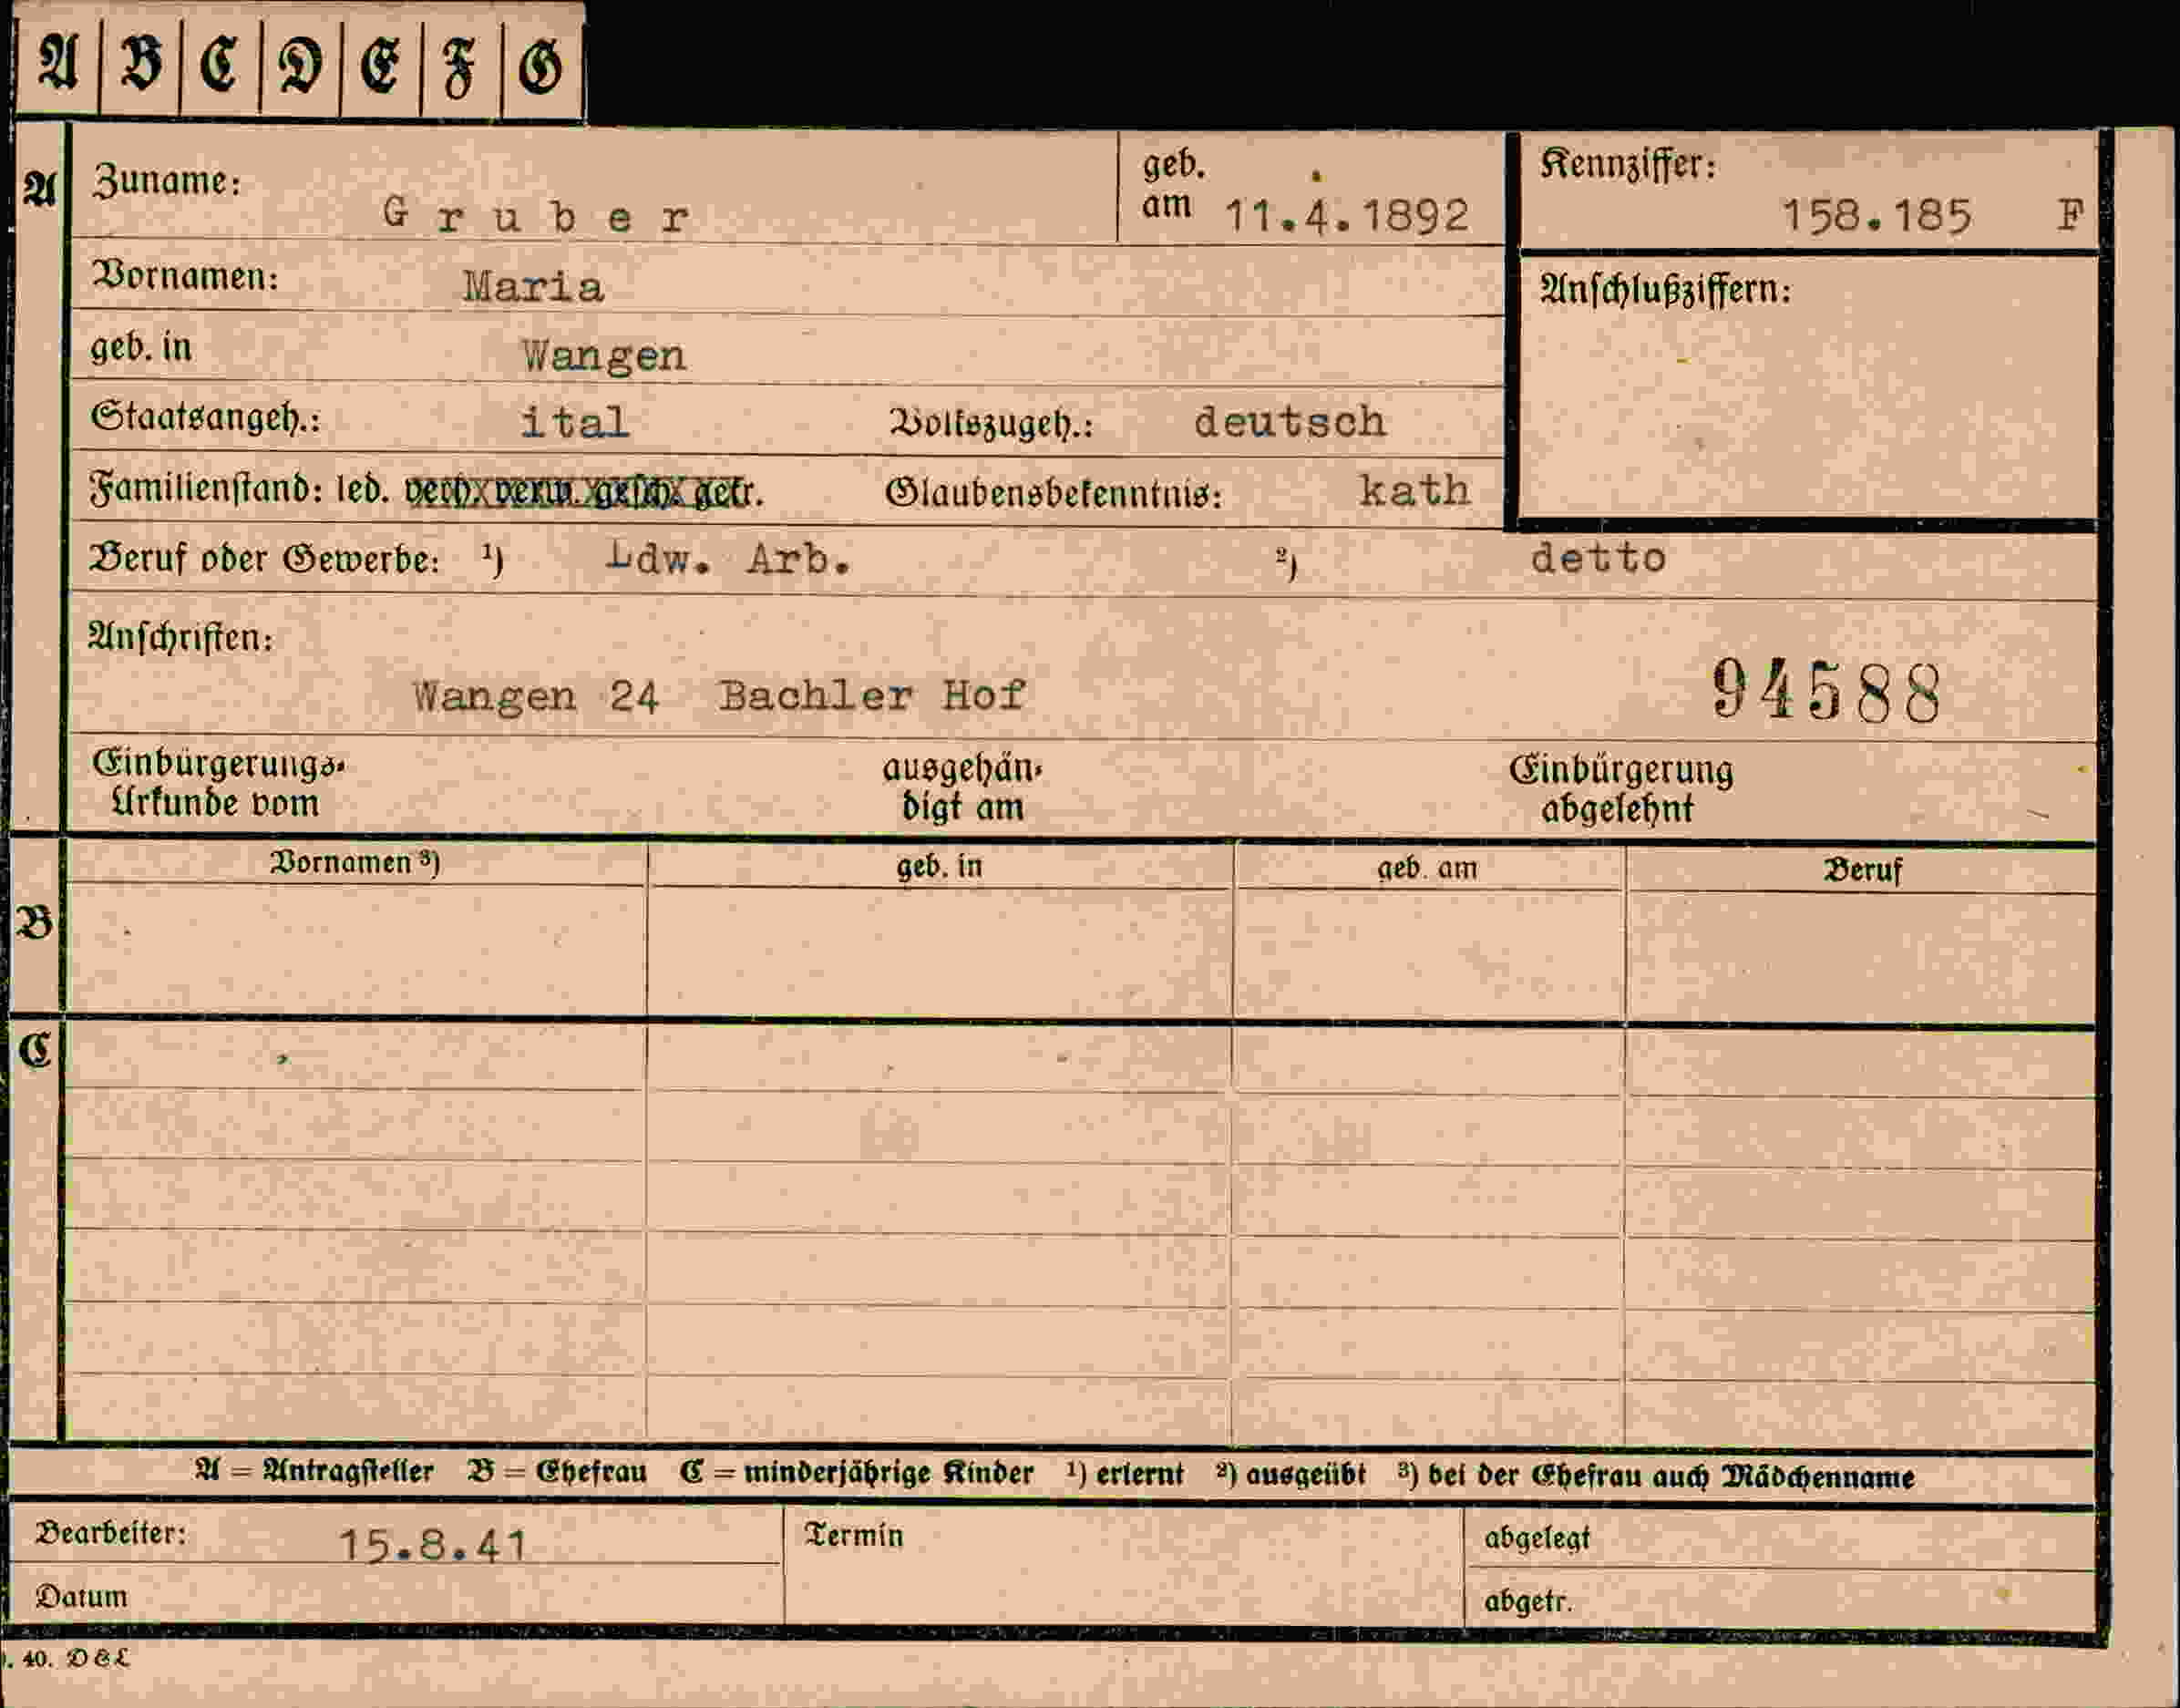 A B C D E F G
A Zuname: Gruber geb. am 11.4.1892 Kennziffer: 158.185 F
Vornamen: Maria Anschlußziffern:
geb. in Wangen
Staatsangeh.: ital Volkszugeh.: deutsch
Familienstand: led. verh. verw. gesch. getr. Glaubensbekenntnis: kath
Beruf oder Gewerbe: ¹) Ldw. Arb. ²) detto
Anschriften:
Wangen 24 Bachler Hof 94588
Einbürgerungs- ausgehän- Einbürgerung
Urkunde vom digt am abgelehnt
Vornamen ³) geb. in geb. am Beruf
B
C
A = Antragsteller B = Ehefrau C = minderjährige Kinder ¹) erlernt ²) ausgeübt ³) bei der Ehefrau auch Mädchenname
Bearbeiter: 15.8.41 Termin abgelegt
Datum abgetr.
. 40. D & L